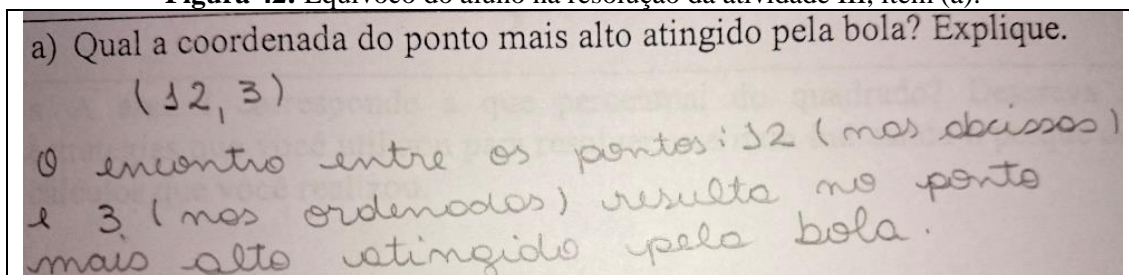 Figura 42: Equívoco do aluno na resolução da atividade III, item (a).
a) Qual a coordenada do ponto mais alto atingido pela bola? Explique.
(12, 3)
O encontro entre os pontos: 12 (nas abcissas)
e 3 (nas ordenadas) resulta no ponto
mais alto atingido pela bola.